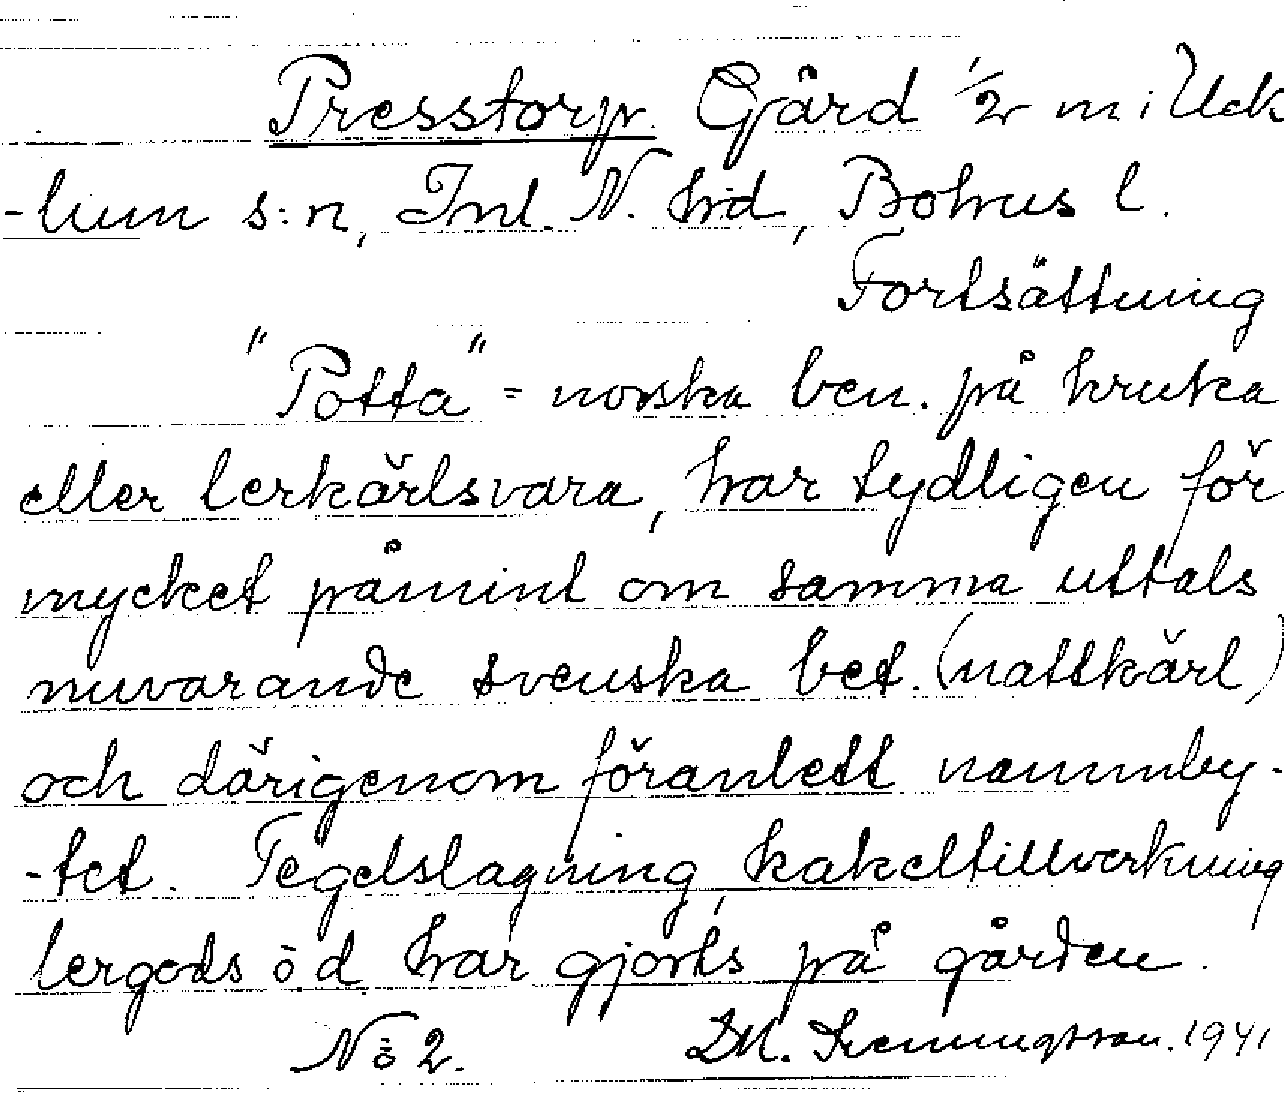 Presstorp. Gård 1/2 m i Uck
-lum s:n, Inl. N. hrd, Bohus l.
Fortsättning
"Potta" = norska ben. på kruka
eller lerkärlsvara, har tydligen för
mycket påmint om samma uttals
nuvarande svenska bet. (nattkärl)
och därigenom föranlett namnby-
-tet. Tegelslagning, kakeltillverkning
lergods o d har gjorts på gården.
No 2. 1941